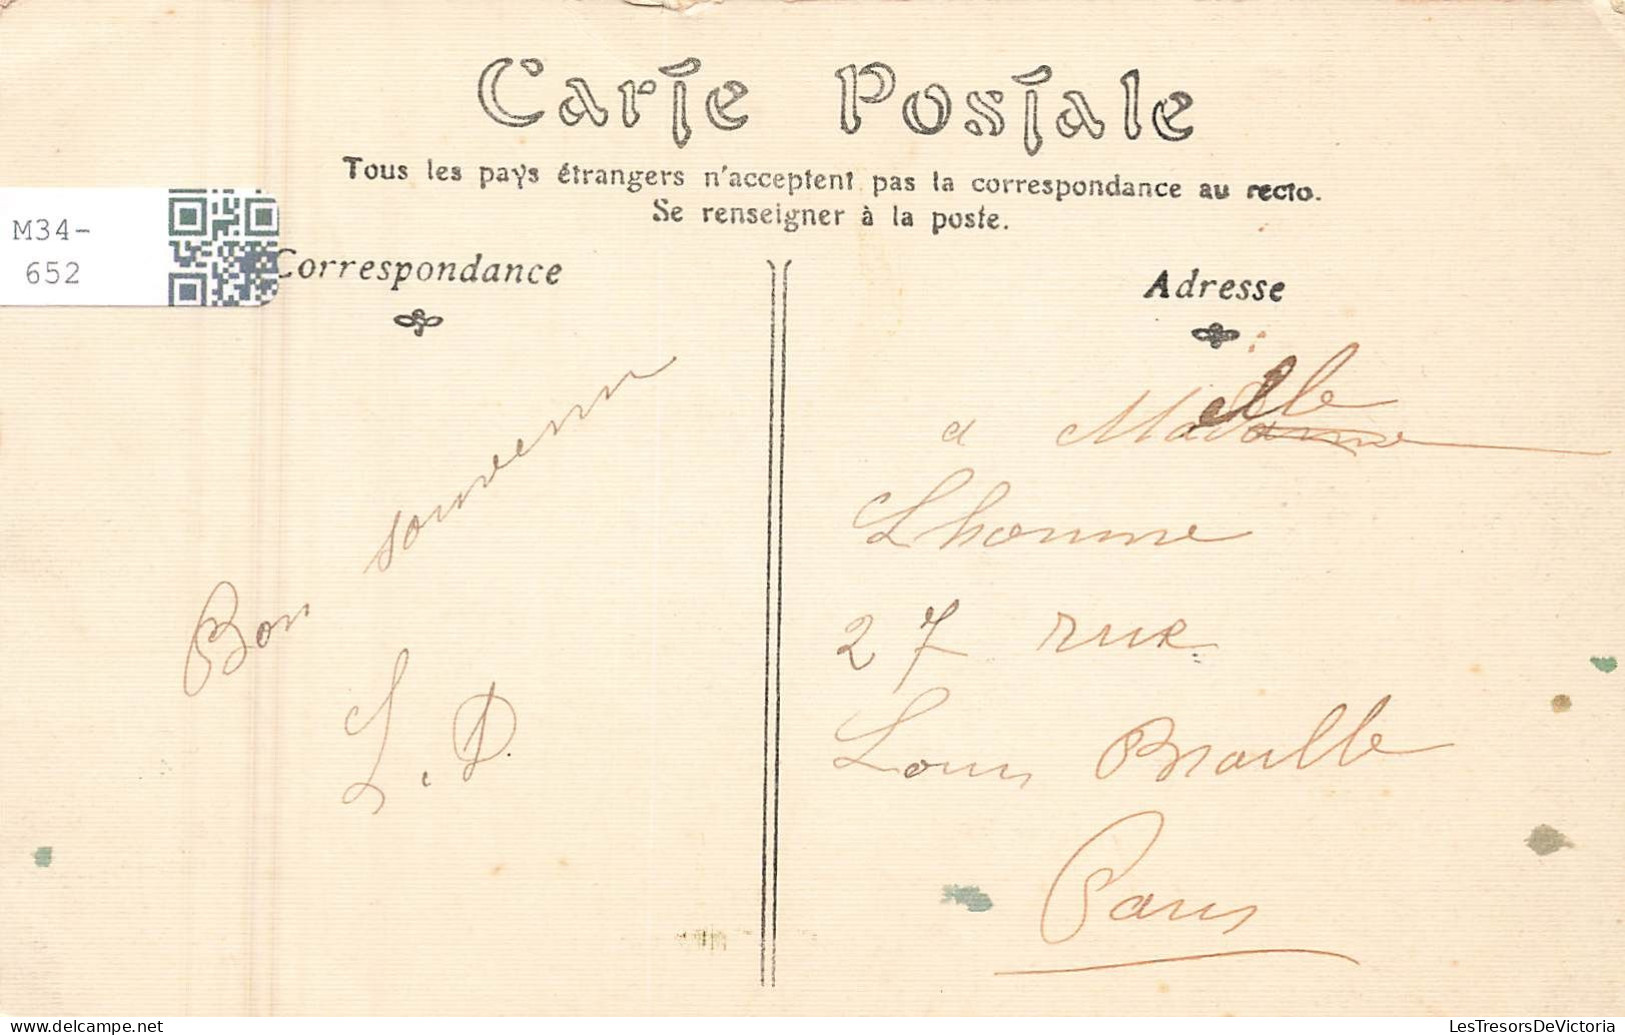 Carte Postale
Tous les pays étrangers n'acceptent pas la correspondance au recto.
Se renseigner à la poste.
M34-
652
Correspondance
Adresse
Bon souvenir
L. D.
à Madame elle
Lhomme
27 rue
Louis Braille
Paris
delcampe.net
LesTresorsDeVictoria